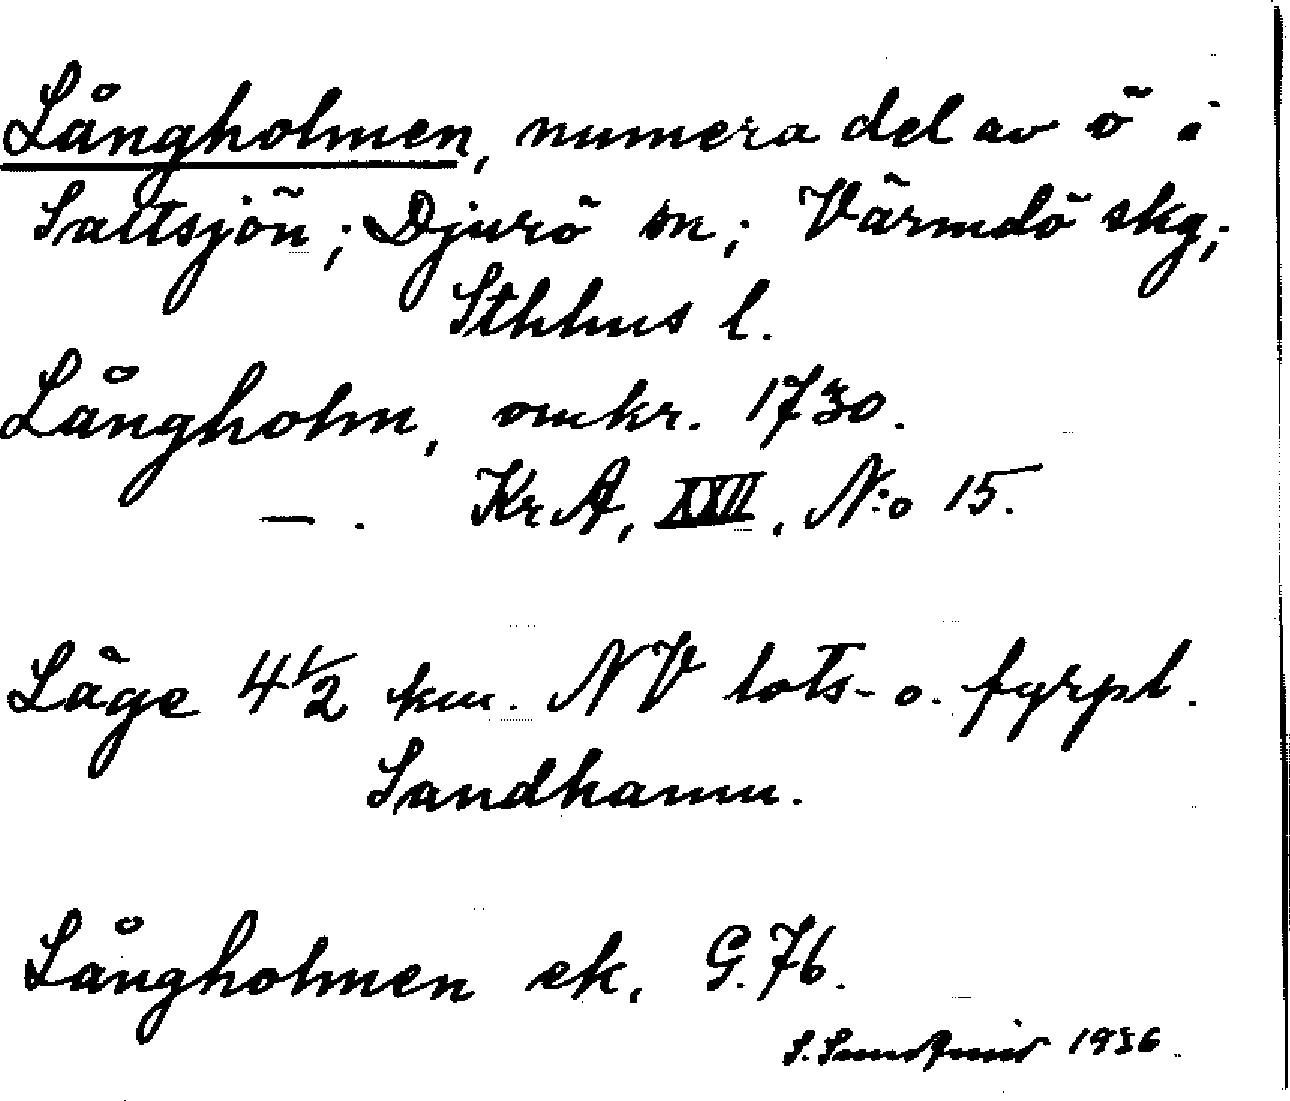 Långholmen, numera del av ö i
Saltsjön; Djurö sn; Värmdö skg;
Sthlms l.
Långholm, omkr. 1730.
—. KrA, XXII, N:o 15.
Läge 4 1/2 km. NV lots- o. fyrpl.
Sandhamn.
Långholmen ek. G.76.
S. 1936